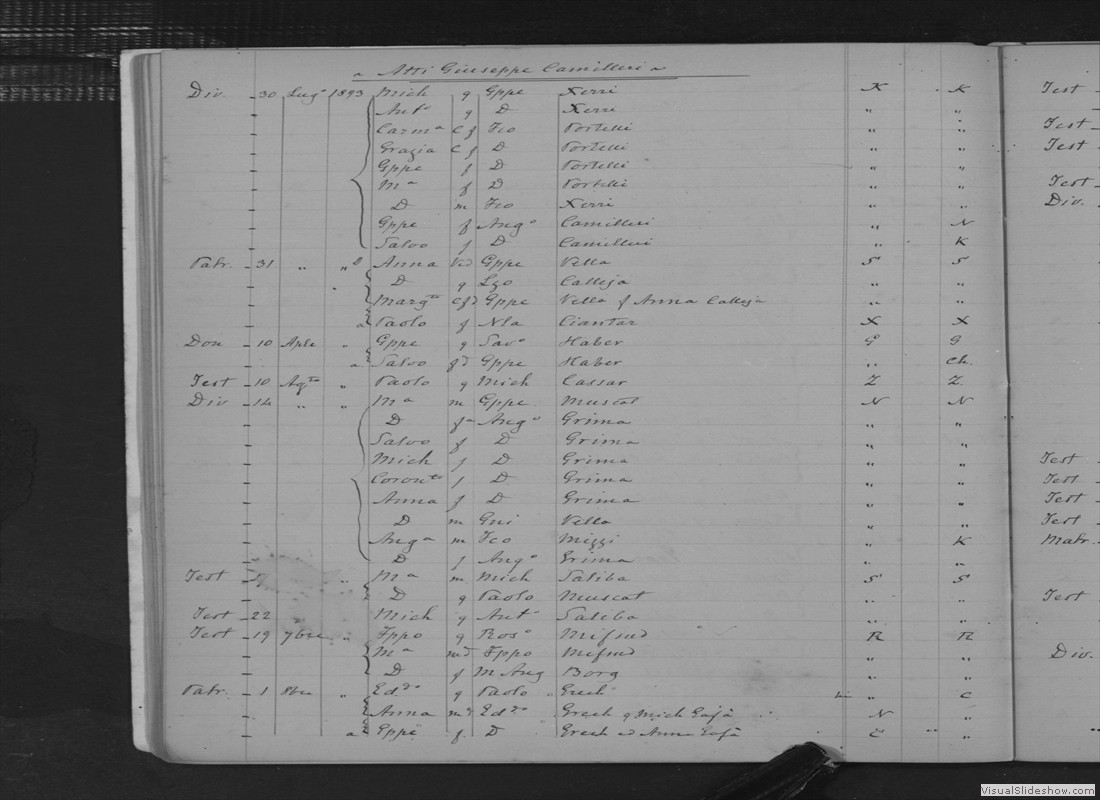 Atti Giuseppe Camilleri
Div. 30 Lug° 1893 Mich q Gppe Xerri K K Test
Ant° q D Xerri " "
Carmª C f Fco Portelli " " Test
Grazia C f D Portelli " " Test
Gppe f D Portelli " "
Mª f D Portelli " " Test
D m Fco Xerri " " Div.
Gppe f Ang° Camilleri " N
Salvo f D Camilleri " K
Patr. 31 " " Anna Ved Gppe Vella S S
D q Lzo Calleja " "
Marg Gppe Vella f Anna Calleja " "
a Paolo f Nla Ciantar X X
Don 10 Aple " Gppe q Sav° Haber G G
a Salvo Gppe Haber " Ch.
Test 10 Agto " Paolo q Mich Cassar Z Z
Div 14 " " Mª m Gppe Muscat N N
D Ang° Grima " "
Salvo f D Grima " "
Mich f D Grima " " Test
f D Grima " " Test
Anna f D Grima " " Test
D m Gni Vella " " Test
Angª m Fco Mizzi " K Matr.
D f Ang° Grima " "
Test " Mª m Mich Saliba S S
D q Paolo Muscat " " Test
Test 22 Mich q Ant° Saliba " "
Test 19 7bre " Fppo q Ros° Mifsud R R
Mª Fppo Mifsud " " Div.
D f M Ang Borg " "
Patr. 1 8bre " Ed.do q Paolo Grech " C
Anna Ed.do Grech q Mich Gafà N "
a Gppe f D Grech ed Anna Gafà C " "
VisualSlideshow.com